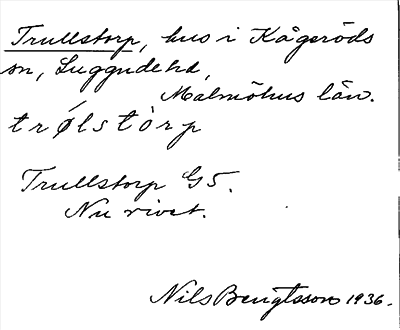 Trullstorp, hus i Kågeröds
sn, Luggude hd,
Malmöhus län.
trǿlstòrp
Trullstorp G5.
Nu rivet.
Nils Bengtsson 1936.